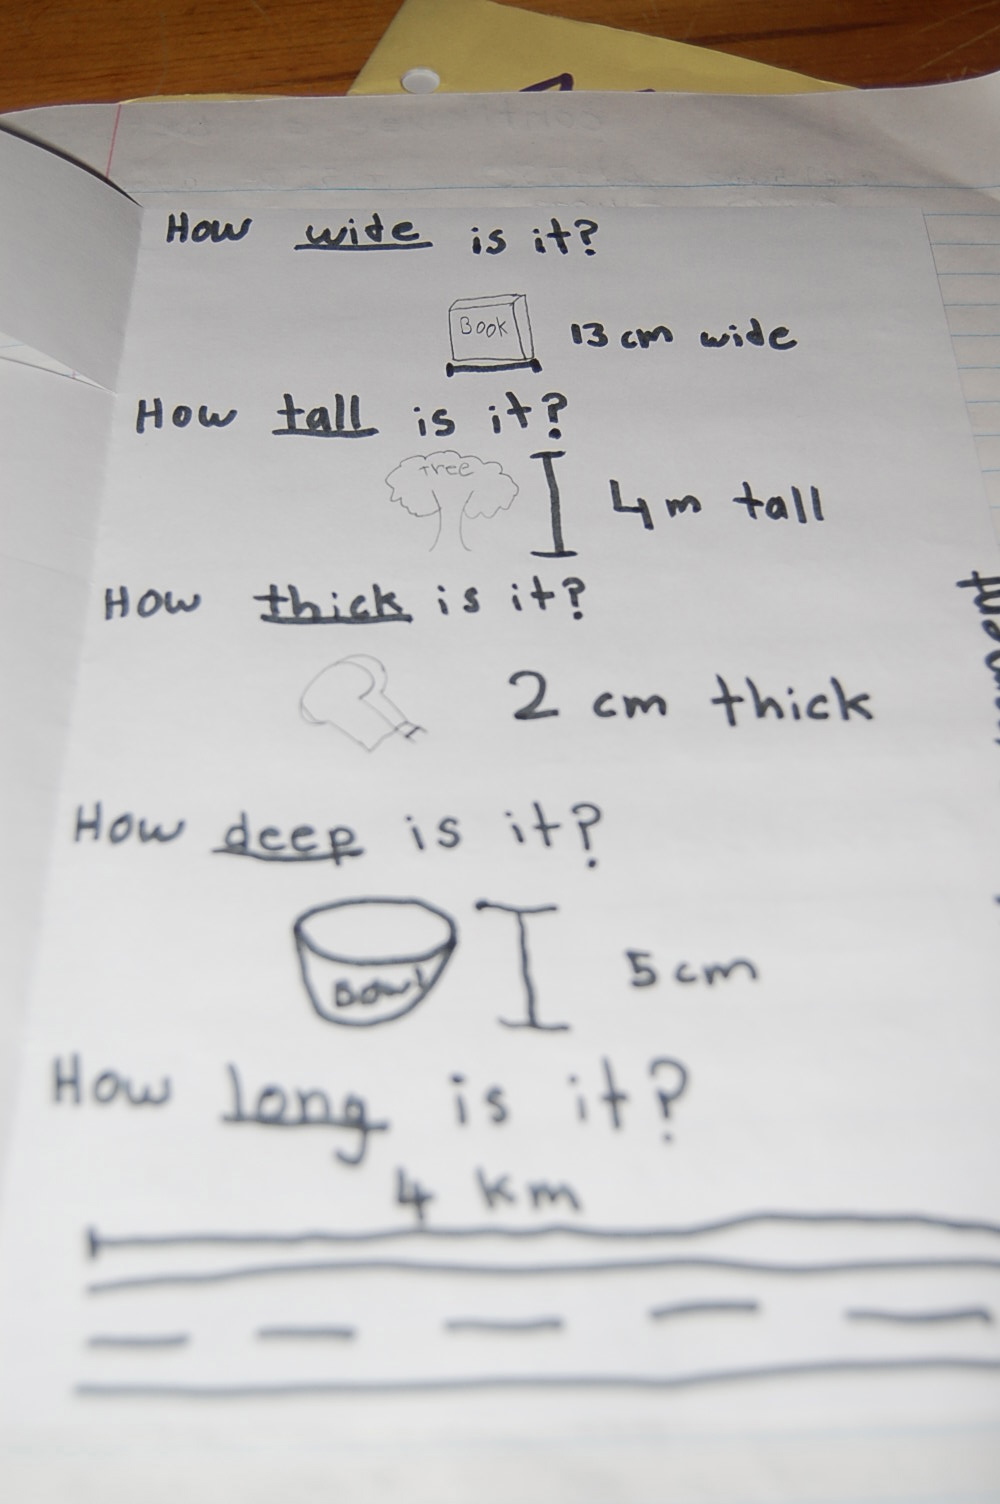 How wide is it?
Book
13 cm wide
How tall is it?
tree
4m tall
How thick is it?
2 cm thick
How deep is it?
Bowl
5 cm
How long is it?
4 km